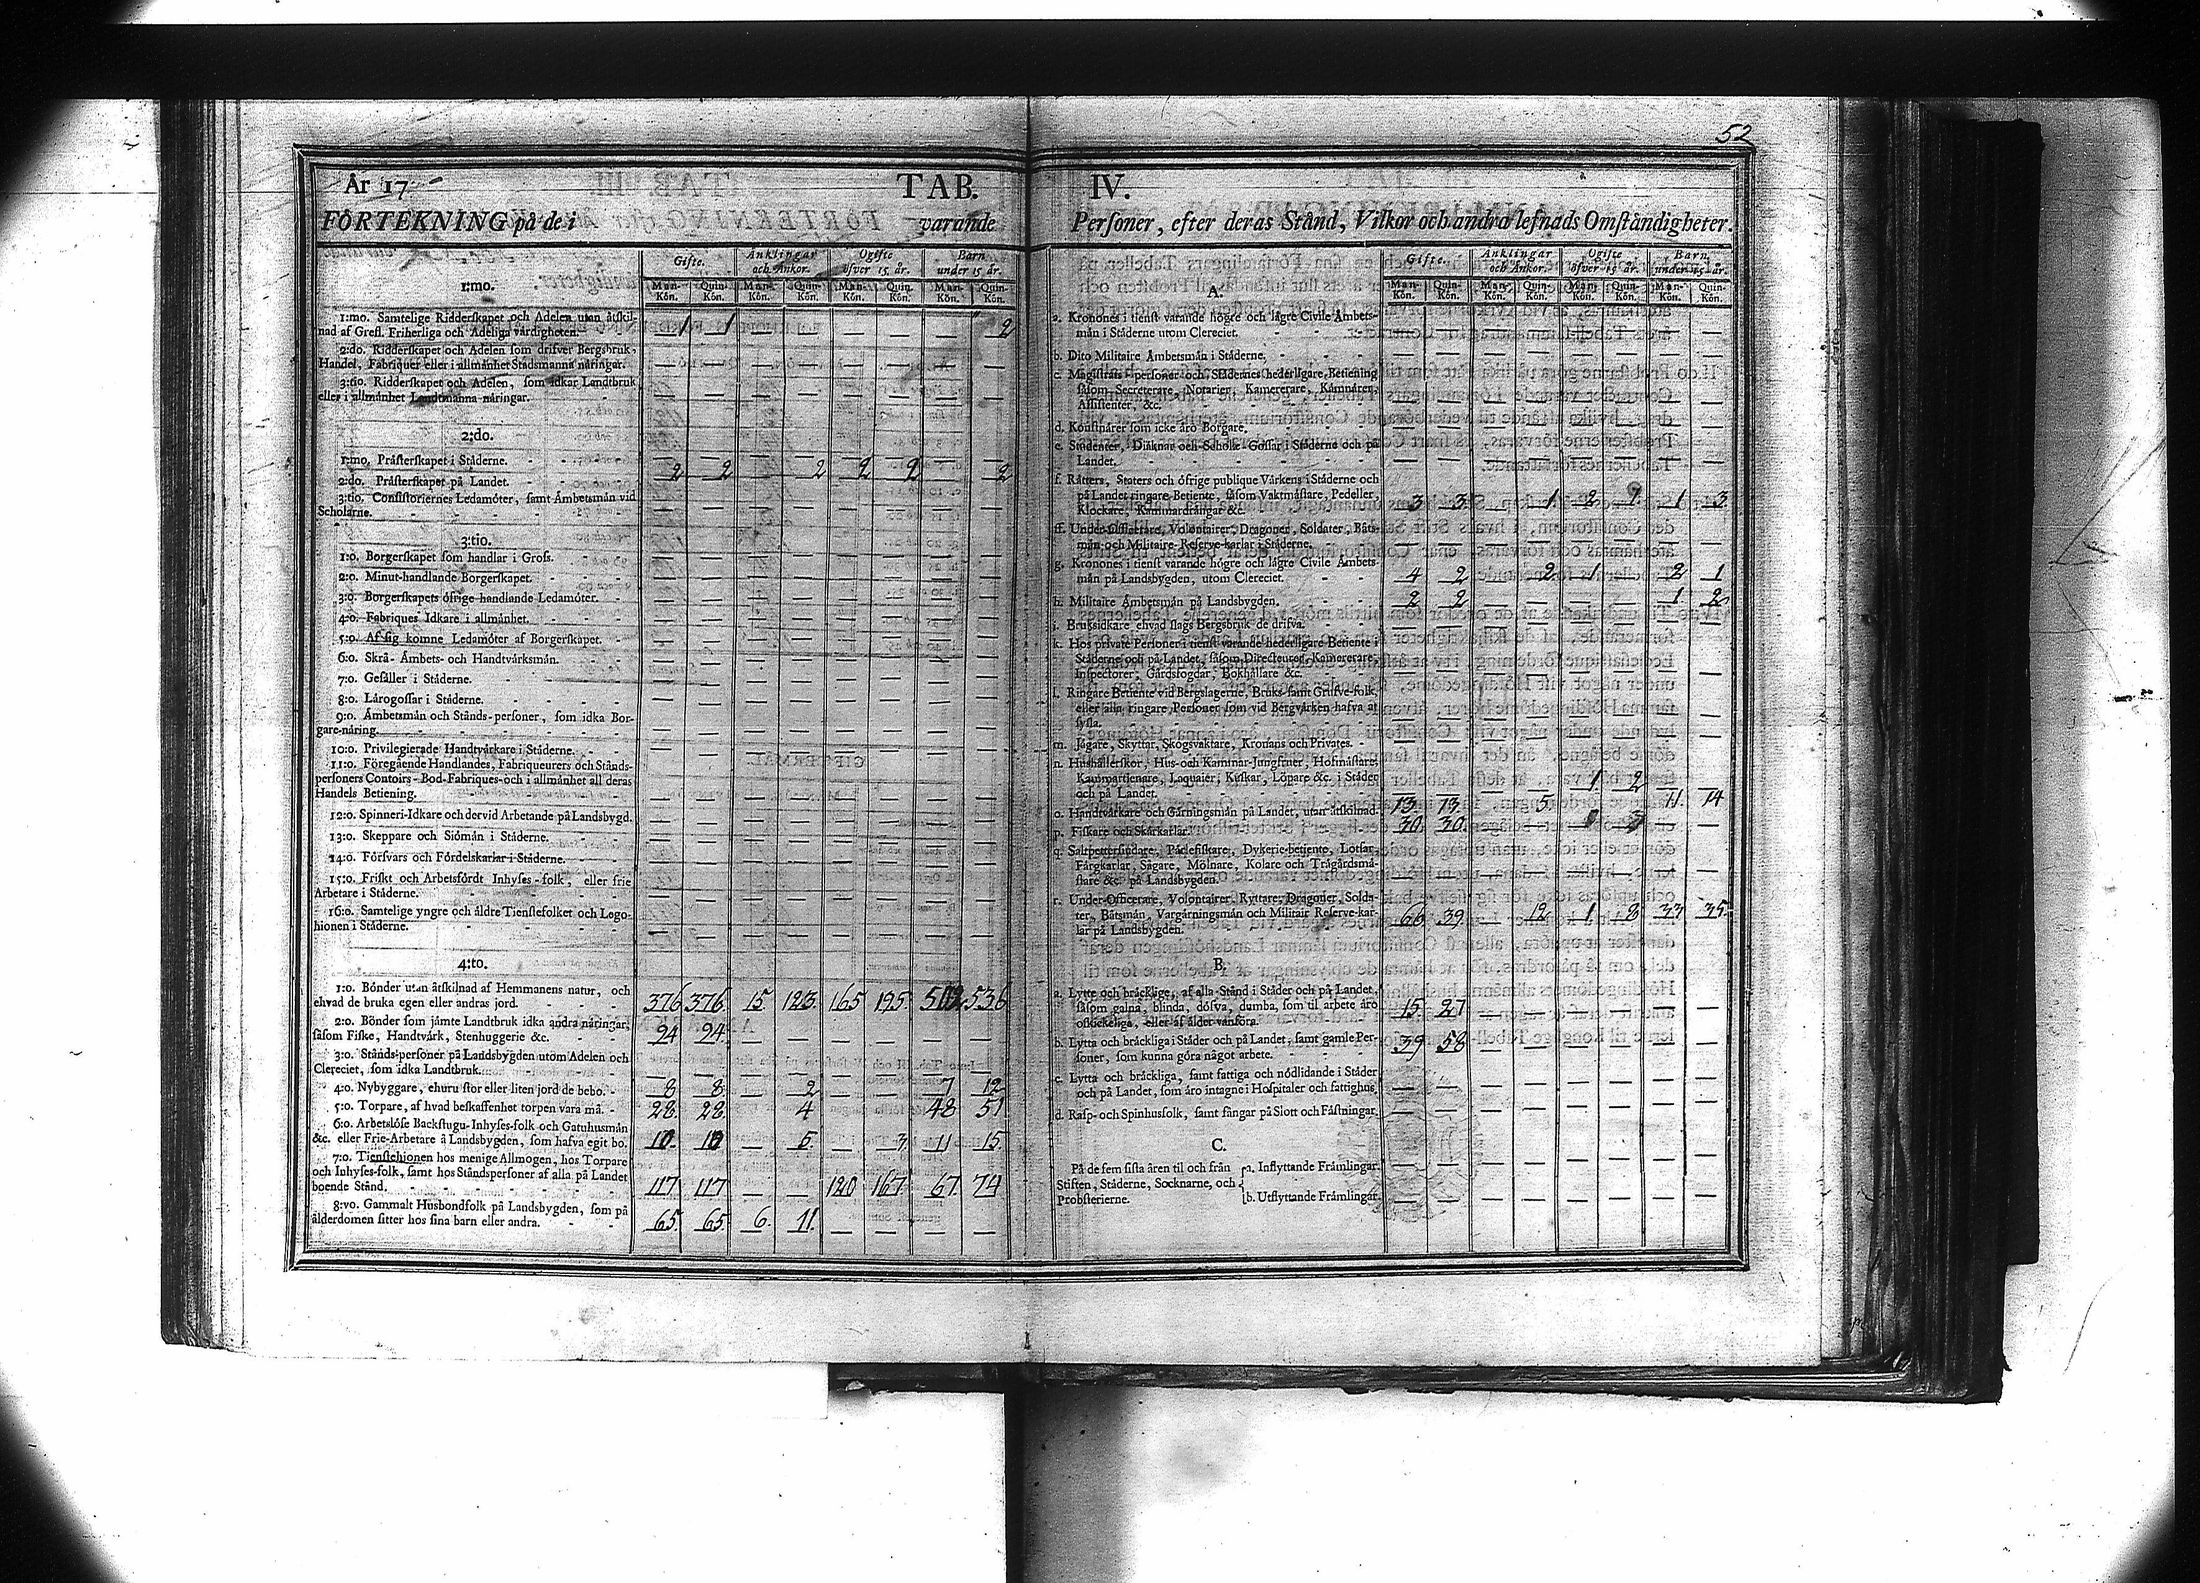 52
År 17 TAB. IV.
FÖRTEKNING på de i varande Personer, efter deras Stånd, Vilkor och andra lefnads Omständigheter.
Gifte. Änklingar och Ånkor. Ogifte öfver 15. år. Barn under 15 år.
Man-Kön. Quin-Kön. Man-Kön. Quin-Kön. Man-Kön. Quin-Kön. Man-Kön. Quin-Kön.
1:mo.
1:mo. Samtelige Ridderskapet och Adelen utan åtskil-
nad af Grefl. Friherliga och Adeliga värdigheter. 1 1 — — — — — 2
2:do. Ridderskapet och Adelen som drifver Bergsbruk,
Handel, Fabriquer eller i allmänhet Stadsmanna näringar. — — — — — — — —
3:tio. Ridderskapet och Adelen, som idkar Landtbruk
eller i allmänhet Landtmanna näringar. — — — — — — — —
2:do.
1:mo. Prästerskapet i Städerne. 2 2 — 2 2 2 — 2
2:do. Prästerskapet på Landet.
3:tio. Consistoriernes Ledamöter, samt Ämbetsmän vid
Scholarne. — — — — — — — —
3:tio.
1:o. Borgerskapet som handlar i Gross. — — — — — — — —
2:o. Minut-handlande Borgerskapet. — — — — — — — —
3:o. Borgerskapets öfrige handlande Ledamöter. — — — — — — — —
4:o. Fabriques Idkare i allmänhet. — — — — — — — —
5:o. Af sig komne Ledamöter af Borgerskapet. — — — — — — — —
6:o. Skrå- Ämbets- och Handtvårksmän. — — — — — — — —
7:o. Gesäller i Städerne. — — — — — — — —
8:o. Lärogossar i Städerne. — — — — — — — —
9:o. Ämbetsmän och Stånds-personer, som idka Bor-
gare-näring. — — — — — — — —
10:o. Privilegierade Handtvårkare i Städerne. — — — — — — — —
11:o. Föregående Handlandes, Fabriqueurers och Stånds-
personers Contoirs- Bod-Fabriques- och i allmänhet all deras
Handels Betiening. — — — — — — — —
12:o. Spinneri-Idkare och dervid Arbetande på Landsbygd. — — — — — — — —
13:o. Skeppare och Siömän i Städerne. — — — — — — — —
14:o. Försvars och Fördelskarlar i Städerne. — — — — — — — —
15:o. Friskt och Arbetsfördt Inhyses-folk, eller frie
Arbetare i Städerne. — — — — — — — —
16:o. Samtelige yngre och äldre Tienstefolket och Lego-
hionen i Städerne. — — — — — — — —
4:to.
1:o. Bönder utan åtskilnad af Hemmanens natur, och
ehvad de bruka egen eller andras jord. 376 376 15 123 165 195 502 536
2:o. Bönder som jämte Landtbruk idka andra näringar,
såsom Fiske, Handtvårk, Stenhuggerie &c. 94 94 — — — — — —
3:o. Stånds-personer på Landsbygden utom Adelen och
Clereciet, som idka Landtbruk. — — — — — — — —
4:o. Nybyggare, ehuru stor eller liten jord de bebo. 8 8 — 2 — — 7 12
5:o. Torpare, af hvad beskaffenhet torpen vara må. 28 28 — 4 — — 48 51
6:o. Arbetslöse Backstugu-Inhyses-folk och Gatuhusmän
&c. eller Frie-Arbetare å Landsbygden, som hafva egit bo. 10 10 — 5 — 3 11 15
7:o. Tienstehionen hos menige Allmogen, hos Torpare
och Inhyses-folk, samt hos Ståndspersoner af alla på Landet
boende Stånd. 117 117 — — 120 167 67 74
8:vo. Gammalt Husbondfolk på Landsbygden, som på
ålderdomen sitter hos sina barn eller andra. 65 65 6 11 — — — —
Gifte. Änklingar och Ånkor. Ogifte öfver 15 år. Barn under 15 år.
Man-Kön. Quin-Kön. Man-Kön. Quin-Kön. Man-Kön. Quin-Kön. Man-Kön. Quin-Kön.
A.
a. Kronones i tienst varande högre och lägre Civile Ämbets-
män i Städerne utom Clereciet. — — — — — — — —
b. Dito Militaire Ämbetsmän i Städerne. — — — — — — — —
c. Magistrats-personer och Städernes hederligare Betiening
såsom Secreterare, Notarier, Kamererare, Kämnärer,
Assistenter, &c. — — — — — — — —
d. Konstnärer som icke äro Borgare. — — — — — — — —
e. Studenter, Diäknar och Schole-Gossar i Städerne och på
Landet. — — — — — — — —
f. Rätters, Staters och öfrige publique Vårkens i Städerne och
på Landet ringare Betiente, såsom Vaktmästare, Pedeller,
Klockare, Kammardrängar &c. 3 3 — 1 2 1 1 3
ff. Under-Officerare, Volontairer, Dragoner, Soldater, Båts-
män och Militaire Reserve-karlar i Städerne. — — — — — — — —
g. Kronones i tienst varande högre och lägre Civile Ämbets-
män på Landsbygden, utom Clereciet. 4 2 — 2 1 — 2 1
h. Militaire Ämbetsmän på Landsbygden. 2 2 — — — — 1 2
i. Bruksidkare ehvad slags Bergsbruk de drifva. — — — — — — — —
k. Hos private Personer i tienst varande hederligare Betiente i
Städerne och på Landet, såsom Directeurer, Kamererare,
Inspectorer, Gårdsfogdar, Bokhållare &c. — — — — — — — —
l. Ringare Betiente vid Bergslagerne, Bruks- samt Grufve-folk,
eller alla ringare Personer som vid Bergvårken hafva at
sysla. — — — — — — — —
m. Jägare, Skyttar, Skogsvaktare, Kronans och Privates. — — — — — — — —
n. Hushållerskor, Hus- och Kammar-Jungfrur, Hofmästare,
Kammartienare, Laquaier, Kuskar, Löpare &c. i Städer
och på Landet. — — — — 1 2 — —
o. Handtvårkare och Gärningsmän på Landet, utan åtskilnad. 13 13 — 5 — — 11 14
p. Fiskare och Skärkarlar. 30 30 — — — —
q. Saltpettersiudare, Pärlefiskare, Dykerie-betiente, Lottsar,
Färgkarlar, Sågare, Mölnare, Kolare och Trägårdsmä-
stare &c. på Landsbygden. — — — — — — — —
r. Under-Officerare, Volontairer, Ryttare, Dragoner, Solda-
ter, Båtsmän, Vargärningsmän och Militair Reserve-kar-
lar på Landsbygden. 66 39 — 12 1 8 33 35
B.
a. Lytte och bräcklige, af alla Stånd i Städer och på Landet,
såsom galna, blinda, döfva, dumba, som til arbete äro
oskickeliga, eller af ålder vanföra. 15 27 — — — — — —
b. Lytta och bräckliga i Städer och på Landet, samt gamle Per-
soner, som kunna göra något arbete. 39 58 — — — — — —
c. Lytta och bräckliga, samt fattiga och nödlidande i Städer
och på Landet, som äro intagne i Hospitaler och fattighus. — — — — — — — —
d. Rasp- och Spinhusfolk, samt fångar på Slott och Fästningar. — — — — — — — —
C.
På de fem sista åren til och från
Stiften, Städerne, Socknarne, och
Probsterierne.
a. Inflyttande Främlingar. — — — — — — — —
b. Utflyttande Främlingar. — — — — — — — —